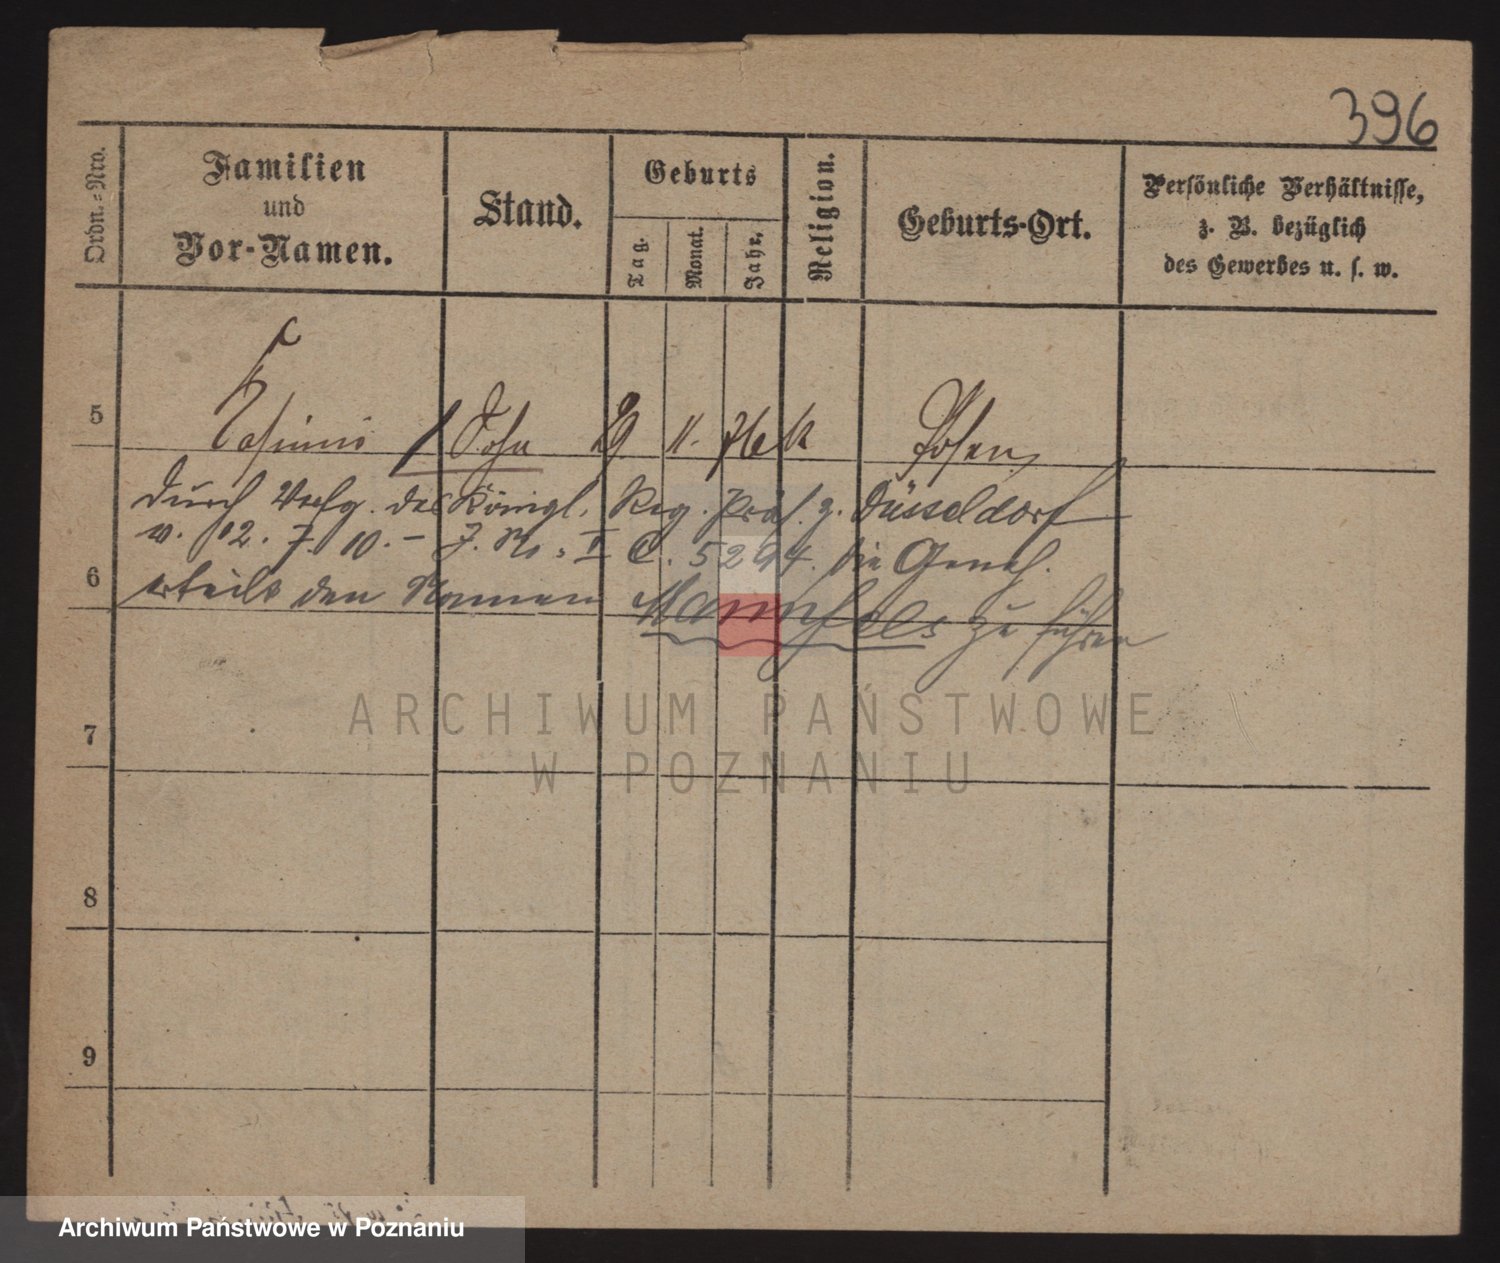 396
Ordn.-Nro.
Familien
und
Vor-Namen.
Stand.
Geburts
Tag.
Monat.
Jahr.
Religion.
Geburts-Ort.
Persönliche Verhältnisse,
z. B. bezüglich
des Gewerbes u. s. w.
5
Sohn 29 11. 76 k Posen
durch Verfg. des Königl. Reg. Präs. z. Düsseldorf
v. 12. 7. 10. – J. No. I C. 5294. die Geneh.
6
erteilt den Namen Mannfels zu führen
7
8
9
ARCHIWUM PAŃSTWOWE
W POZNANIU
Archiwum Państwowe w Poznaniu